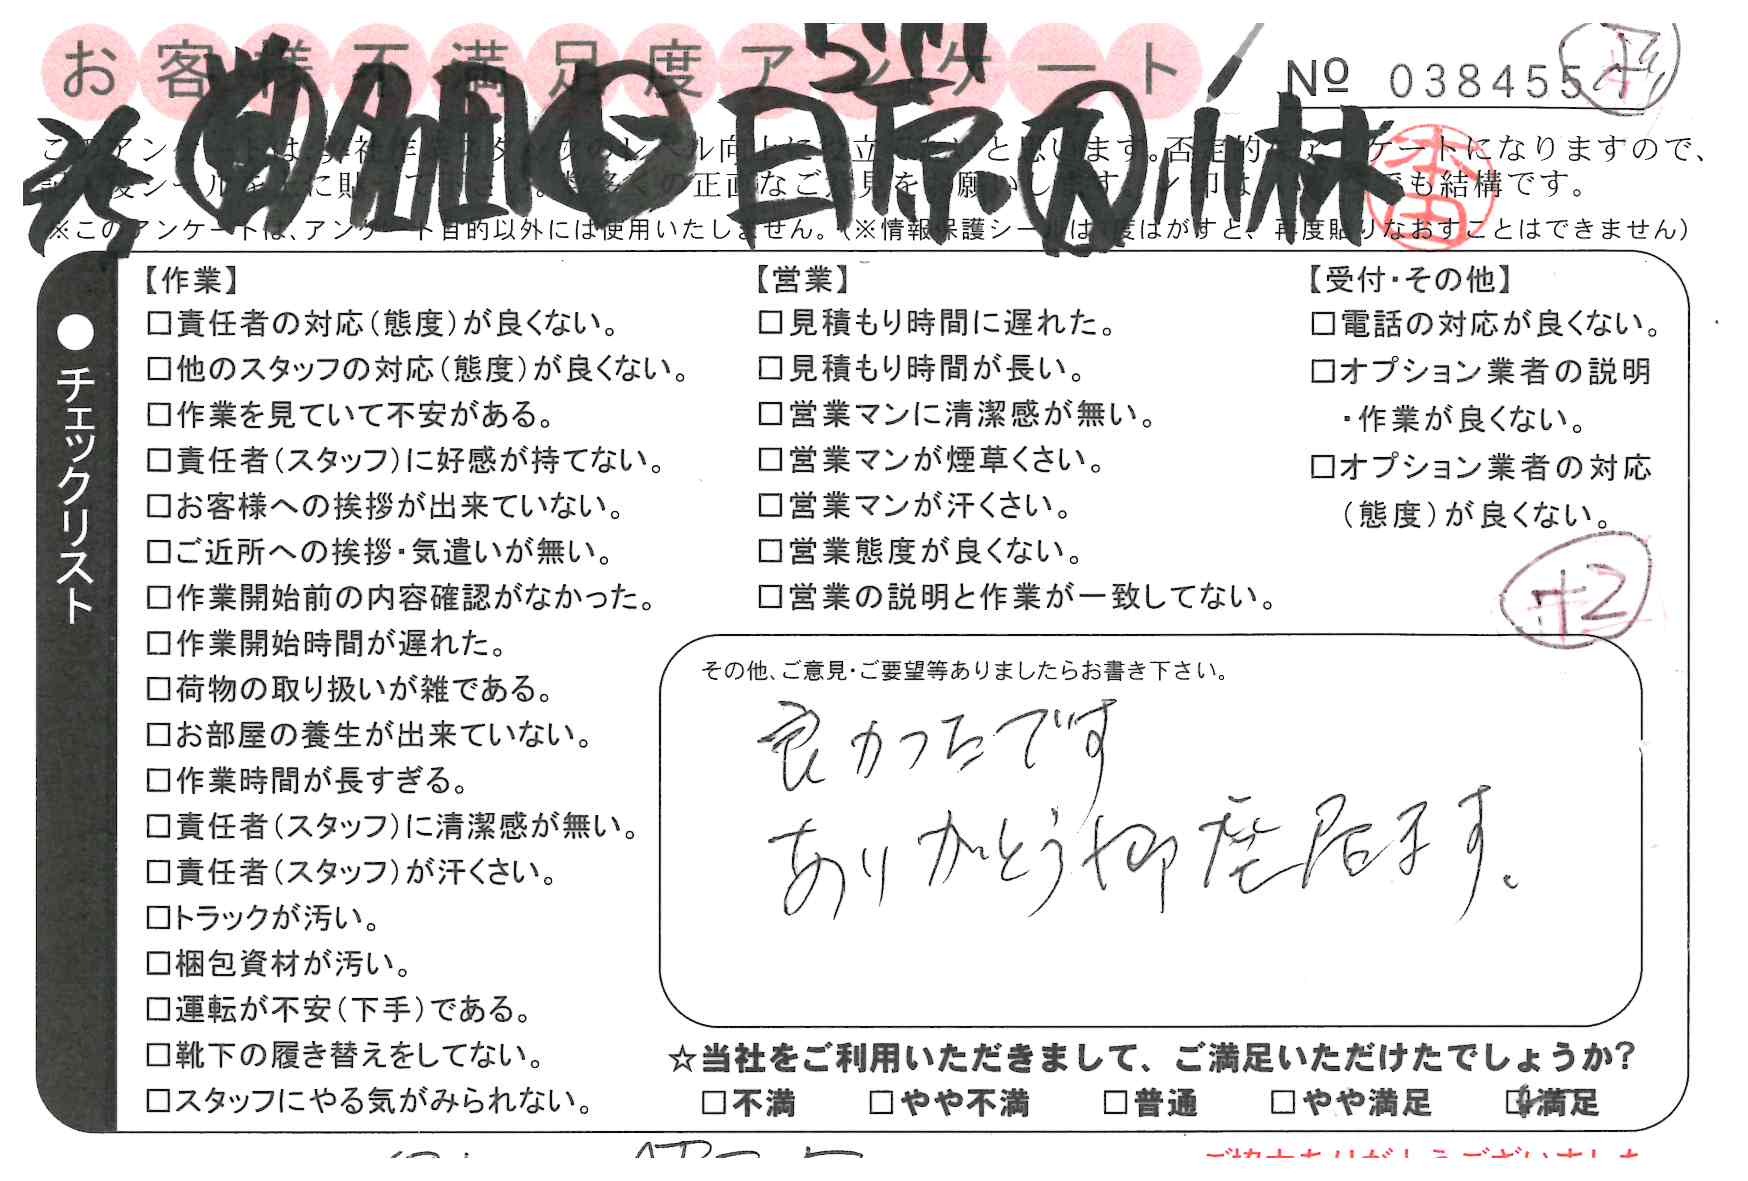 お客様不満足度アンケート
№ 038455
日原 小林
※このアンケートは、アンケート目的以外には使用いたしません。(※情報保護シールは1度はがすと、再度貼りなおすことはできません)
●チェックリスト
【作業】
□責任者の対応(態度)が良くない。
□他のスタッフの対応(態度)が良くない。
□作業を見ていて不安がある。
□責任者(スタッフ)に好感が持てない。
□お客様への挨拶が出来ていない。
□ご近所への挨拶・気遣いが無い。
□作業開始前の内容確認がなかった。
□作業開始時間が遅れた。
□荷物の取り扱いが雑である。
□お部屋の養生が出来ていない。
□作業時間が長すぎる。
□責任者(スタッフ)に清潔感が無い。
□責任者(スタッフ)が汗くさい。
□トラックが汚い。
□梱包資材が汚い。
□運転が不安(下手)である。
□靴下の履き替えをしてない。
□スタッフにやる気がみられない。
【営業】
□見積もり時間に遅れた。
□見積もり時間が長い。
□営業マンに清潔感が無い。
□営業マンが煙草くさい。
□営業マンが汗くさい。
□営業態度が良くない。
□営業の説明と作業が一致してない。
【受付・その他】
□電話の対応が良くない。
□オプション業者の説明
・作業が良くない。
□オプション業者の対応
(態度)が良くない。
+2
その他、ご意見・ご要望等ありましたらお書き下さい。
良かったです
ありがとう御座居ます。
☆当社をご利用いただきまして、ご満足いただけたでしょうか?
□不満 □やや不満 □普通 □やや満足 ☑満足
ご協力ありがとうございました